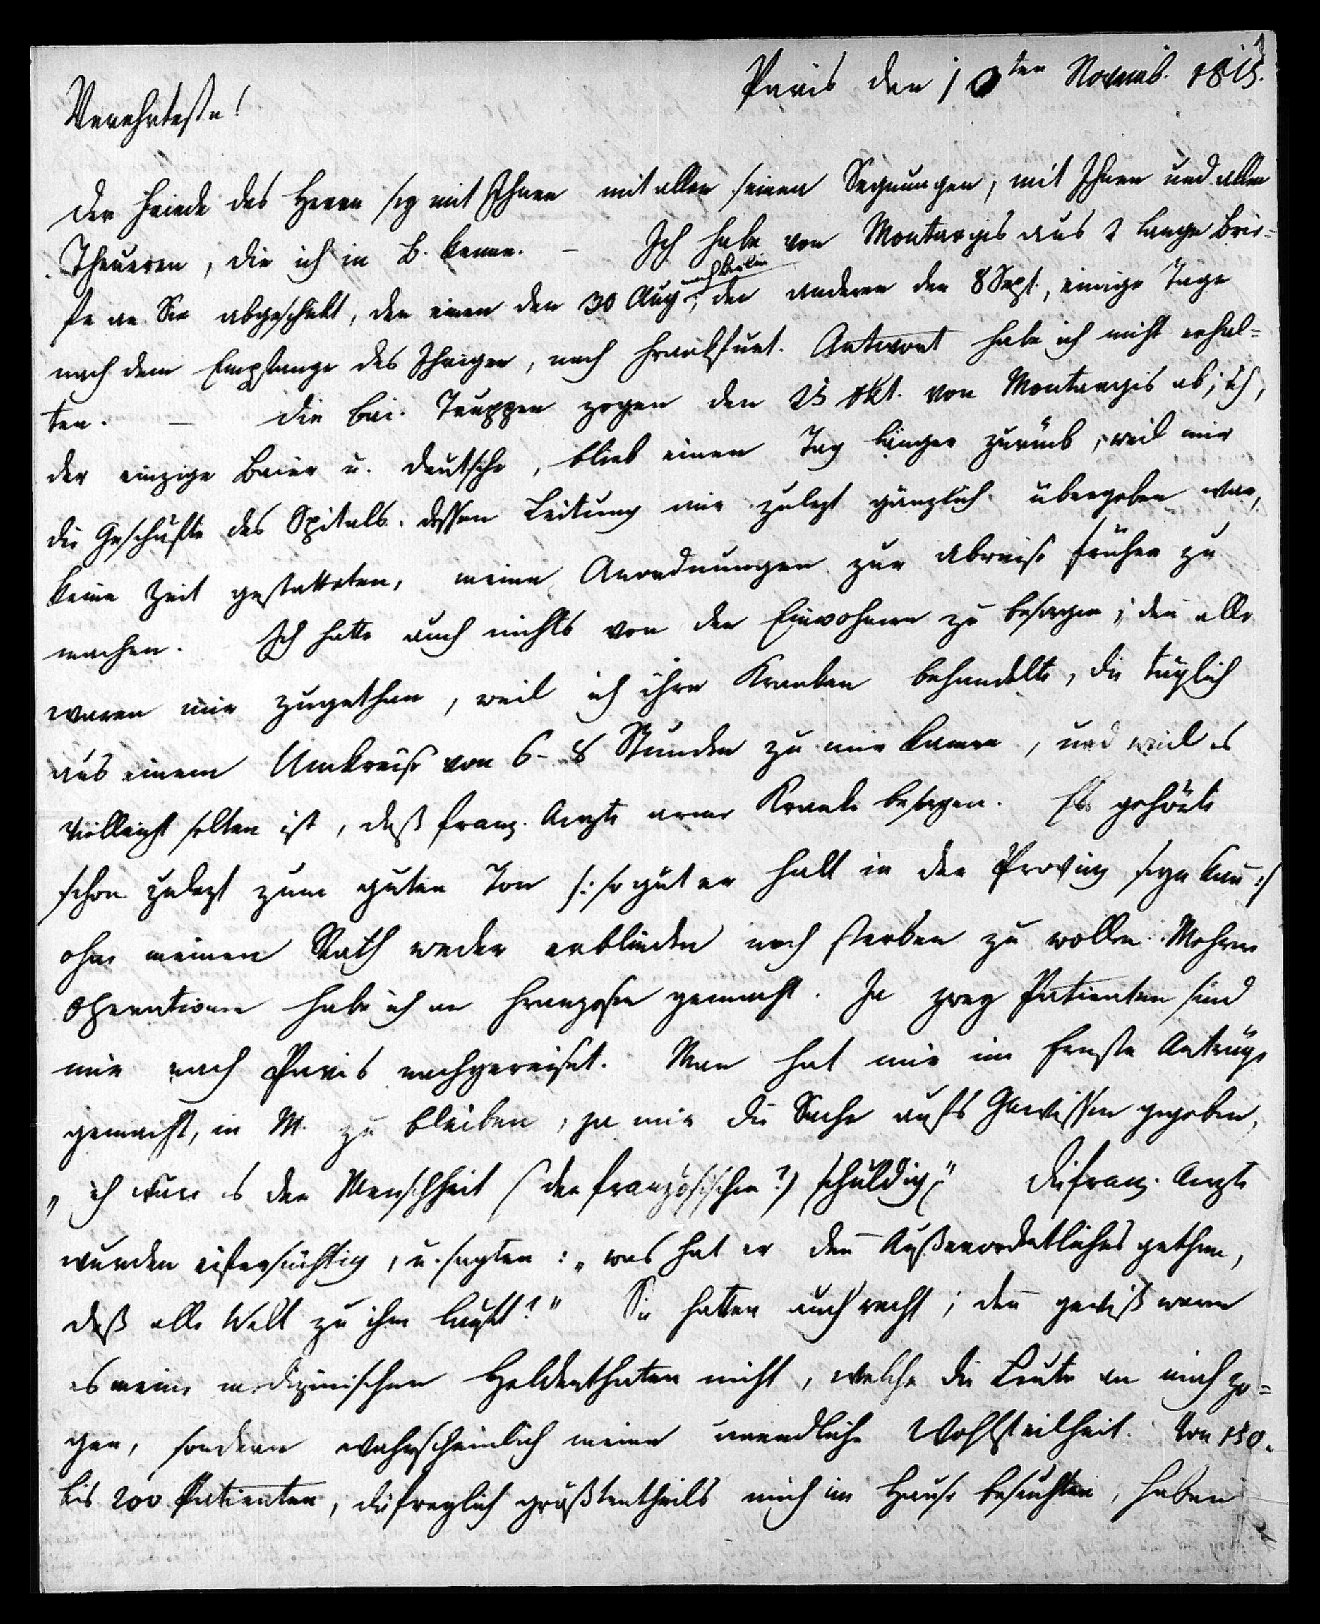 1
Paris den 10ten Novemb. 1815.
Verehrteste!
Der Friede des Herrn sey mit Ihnen mit allen seinen Segnungen, mit Ihnen und allen
Theueren, die ich in B. kenne. – Ich habe von Montargis aus 2 lange Brie=
fe an Sie abgeschikt, den einen den 30 Aug. nach Berlin, den anderen den 8 Sept., einige Tage
nach dem Empfange des Ihrigen, nach Frankfurt. Antwort habe ich nicht erhal=
ten. – Die bai. Truppen zogen den 23 Okt. von Montargis ab; ich,
der einzige Baier u. Deutsche, blieb einen Tag länger zurük, weil mir
die Geschäfte des Spitals, dessen Leitung mir zulezt gänzlich übergeben war,
keine Zeit gestatteten, meine Anordnungen zur Abreise früher zu
machen. Ich hatte auch nichts von den Einwohnern zu besorgen; deñ alle
waren mir zugethan, weil ich ihre Kranken behandelte, die täglich
aus einem Umkreise von 6–8 Stunden zu mir kamen, und weil es
vielleicht selten ist, daß franz. Aerzte arme Kranke besorgen. Es gehörte
schon zulezt zum guten Ton /: so gut er halt in der Provinz seyn kañ :/
ohne meinen Rath weder erblinden noch sterben zu wollen. Mehrere
Operationen habe ich an Franzosen gemacht. Ja zwey Patienten sind
mir nach Paris nachgereiset. Man hat mir im Ernste Anträge
gemacht, in M. zu bleiben, ja mir die Sache aufs Gewissen gegeben,
„ich wäre es der Menschheit (der französischen?) schuldig." Die franz. Aerzte
wurden eifersüchtig, u. sagten: „was hat er deñ Außerordentliches gethan,
daß alle Welt zu ihm lauft?" Sie hatten auch recht; deñ gewiß waren
es meine medizinischen Heldenthaten nicht, welche die Leute an mich zo=
gen, sondern wahrscheinlich meine unendliche Wohlfeilheit. Von 150
bis 200 Patienten, die freylich größtentheils mich im Hause besuchten, haben